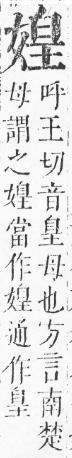 媓
呼王切音皇母也方言南楚
母謂之媓當作媓通作皇